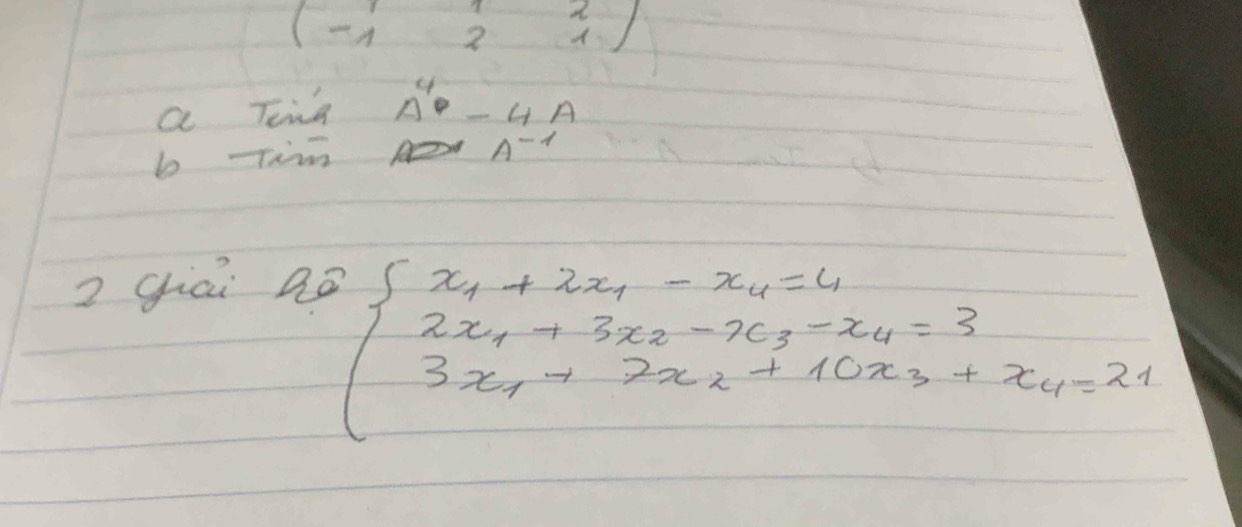 -1 2 1
a Tính A⁴ - 4A
b Tìm A⁻¹
2 Giải hệ { x₁ + 2x₁ - x₄ = 4
2x₁ + 3x₂ - x₃ - x₄ = 3
3x₁ + 7x₂ + 10x₃ + x₄ = 21